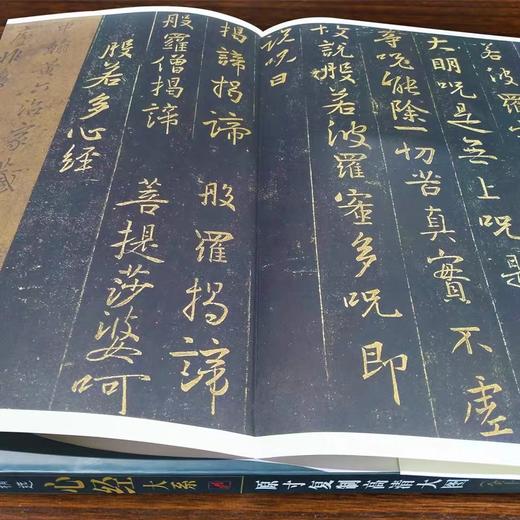 若波羅
大明呪是無上呪是
等呪能除一切苦真實不虛
故說般若波羅蜜多呪即
說呪曰
揭諦揭諦 般羅揭諦
般羅僧揭諦 菩提莎婆呵
般若多心經
家藏
心经大系 原寸复制高清大图